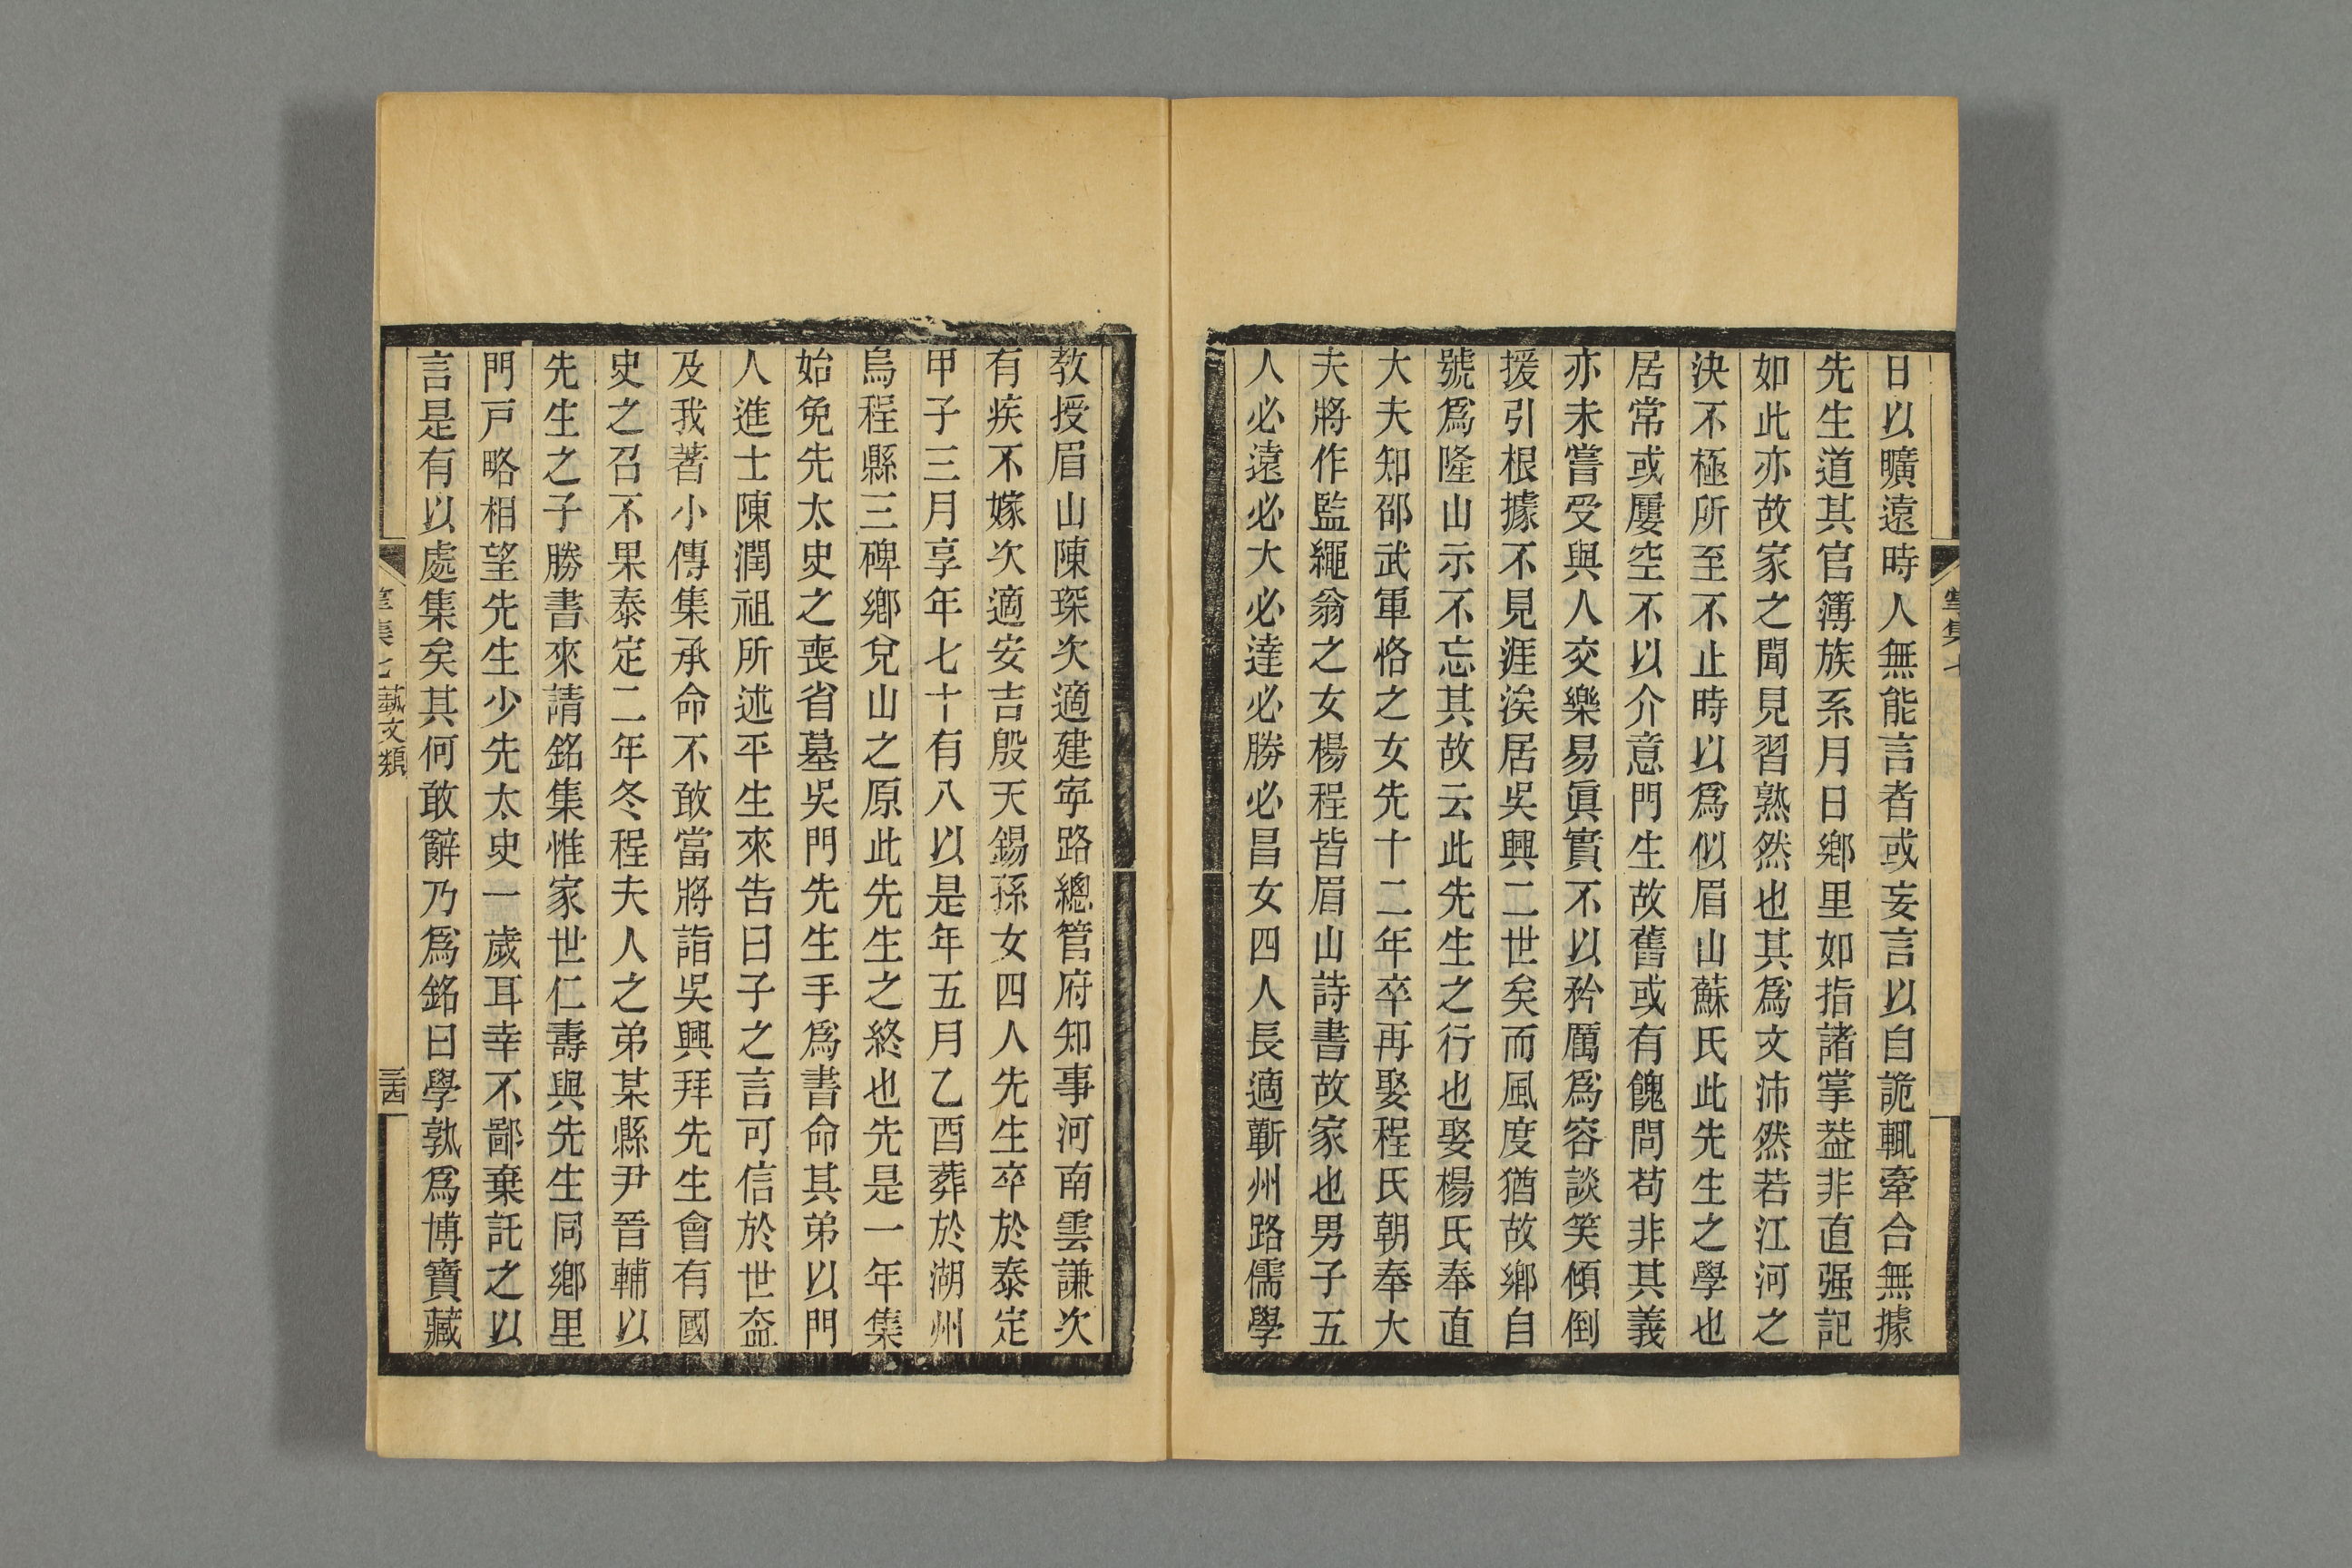 日以曠遠時人無能言者或妄言以自詭輒牽合無據
先生道其官簿族系月日鄉里如指諸掌葢非直强記
如此亦故家之聞見習熟然也其爲文沛然若江河之
決不極所至不止時以爲似眉山蘇氏此先生之學也
居常或屢空不以介意門生故舊或有餽問苟非其義
亦未嘗受與人交樂易眞實不以矜厲爲容談笑傾倒
援引根據不見涯涘居吳興二世矣而風度猶故鄉自
號爲隆山示不忘其故云此先生之行也娶楊氏奉直
大夫知邵武軍恪之女先十二年卒再娶程氏朝奉大
夫將作監繩翁之女楊程皆眉山詩書故家也男子五
人必遠必大必達必勝必昌女四人長適蘄州路儒學
教授眉山陳琛次適建寕路總管府知事河南雲謙次
有疾不嫁次適安吉殷天錫孫女四人先生卒於泰定
甲子三月享年七十有八以是年五月乙酉葬於湖州
烏程縣三碑鄉兌山之原此先生之終也先是一年集
始免先太史之喪省墓吳門先生手爲書命其弟以門
人進士陳潤祖所述平生來告曰子之言可信於世盍
及我著小傳集承命不敢當將詣吳興拜先生會有國
史之召不果泰定二年冬程夫人之弟某縣尹晉輔以
先生之子勝書來請銘集惟家世仁壽與先生同鄉里
門戸略相望先生少先太史一歲耳幸不鄙棄託之以
言是有以處集矣其何敢辭乃爲銘曰學孰爲博寶藏
掌集七 藝文類 三十四